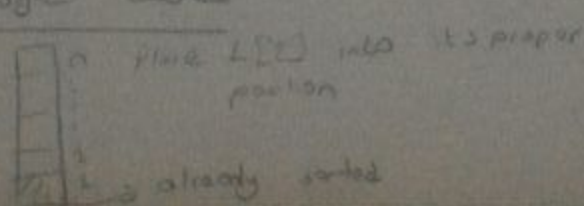 n place L[2] into its proper
position
2
1 → already sorted